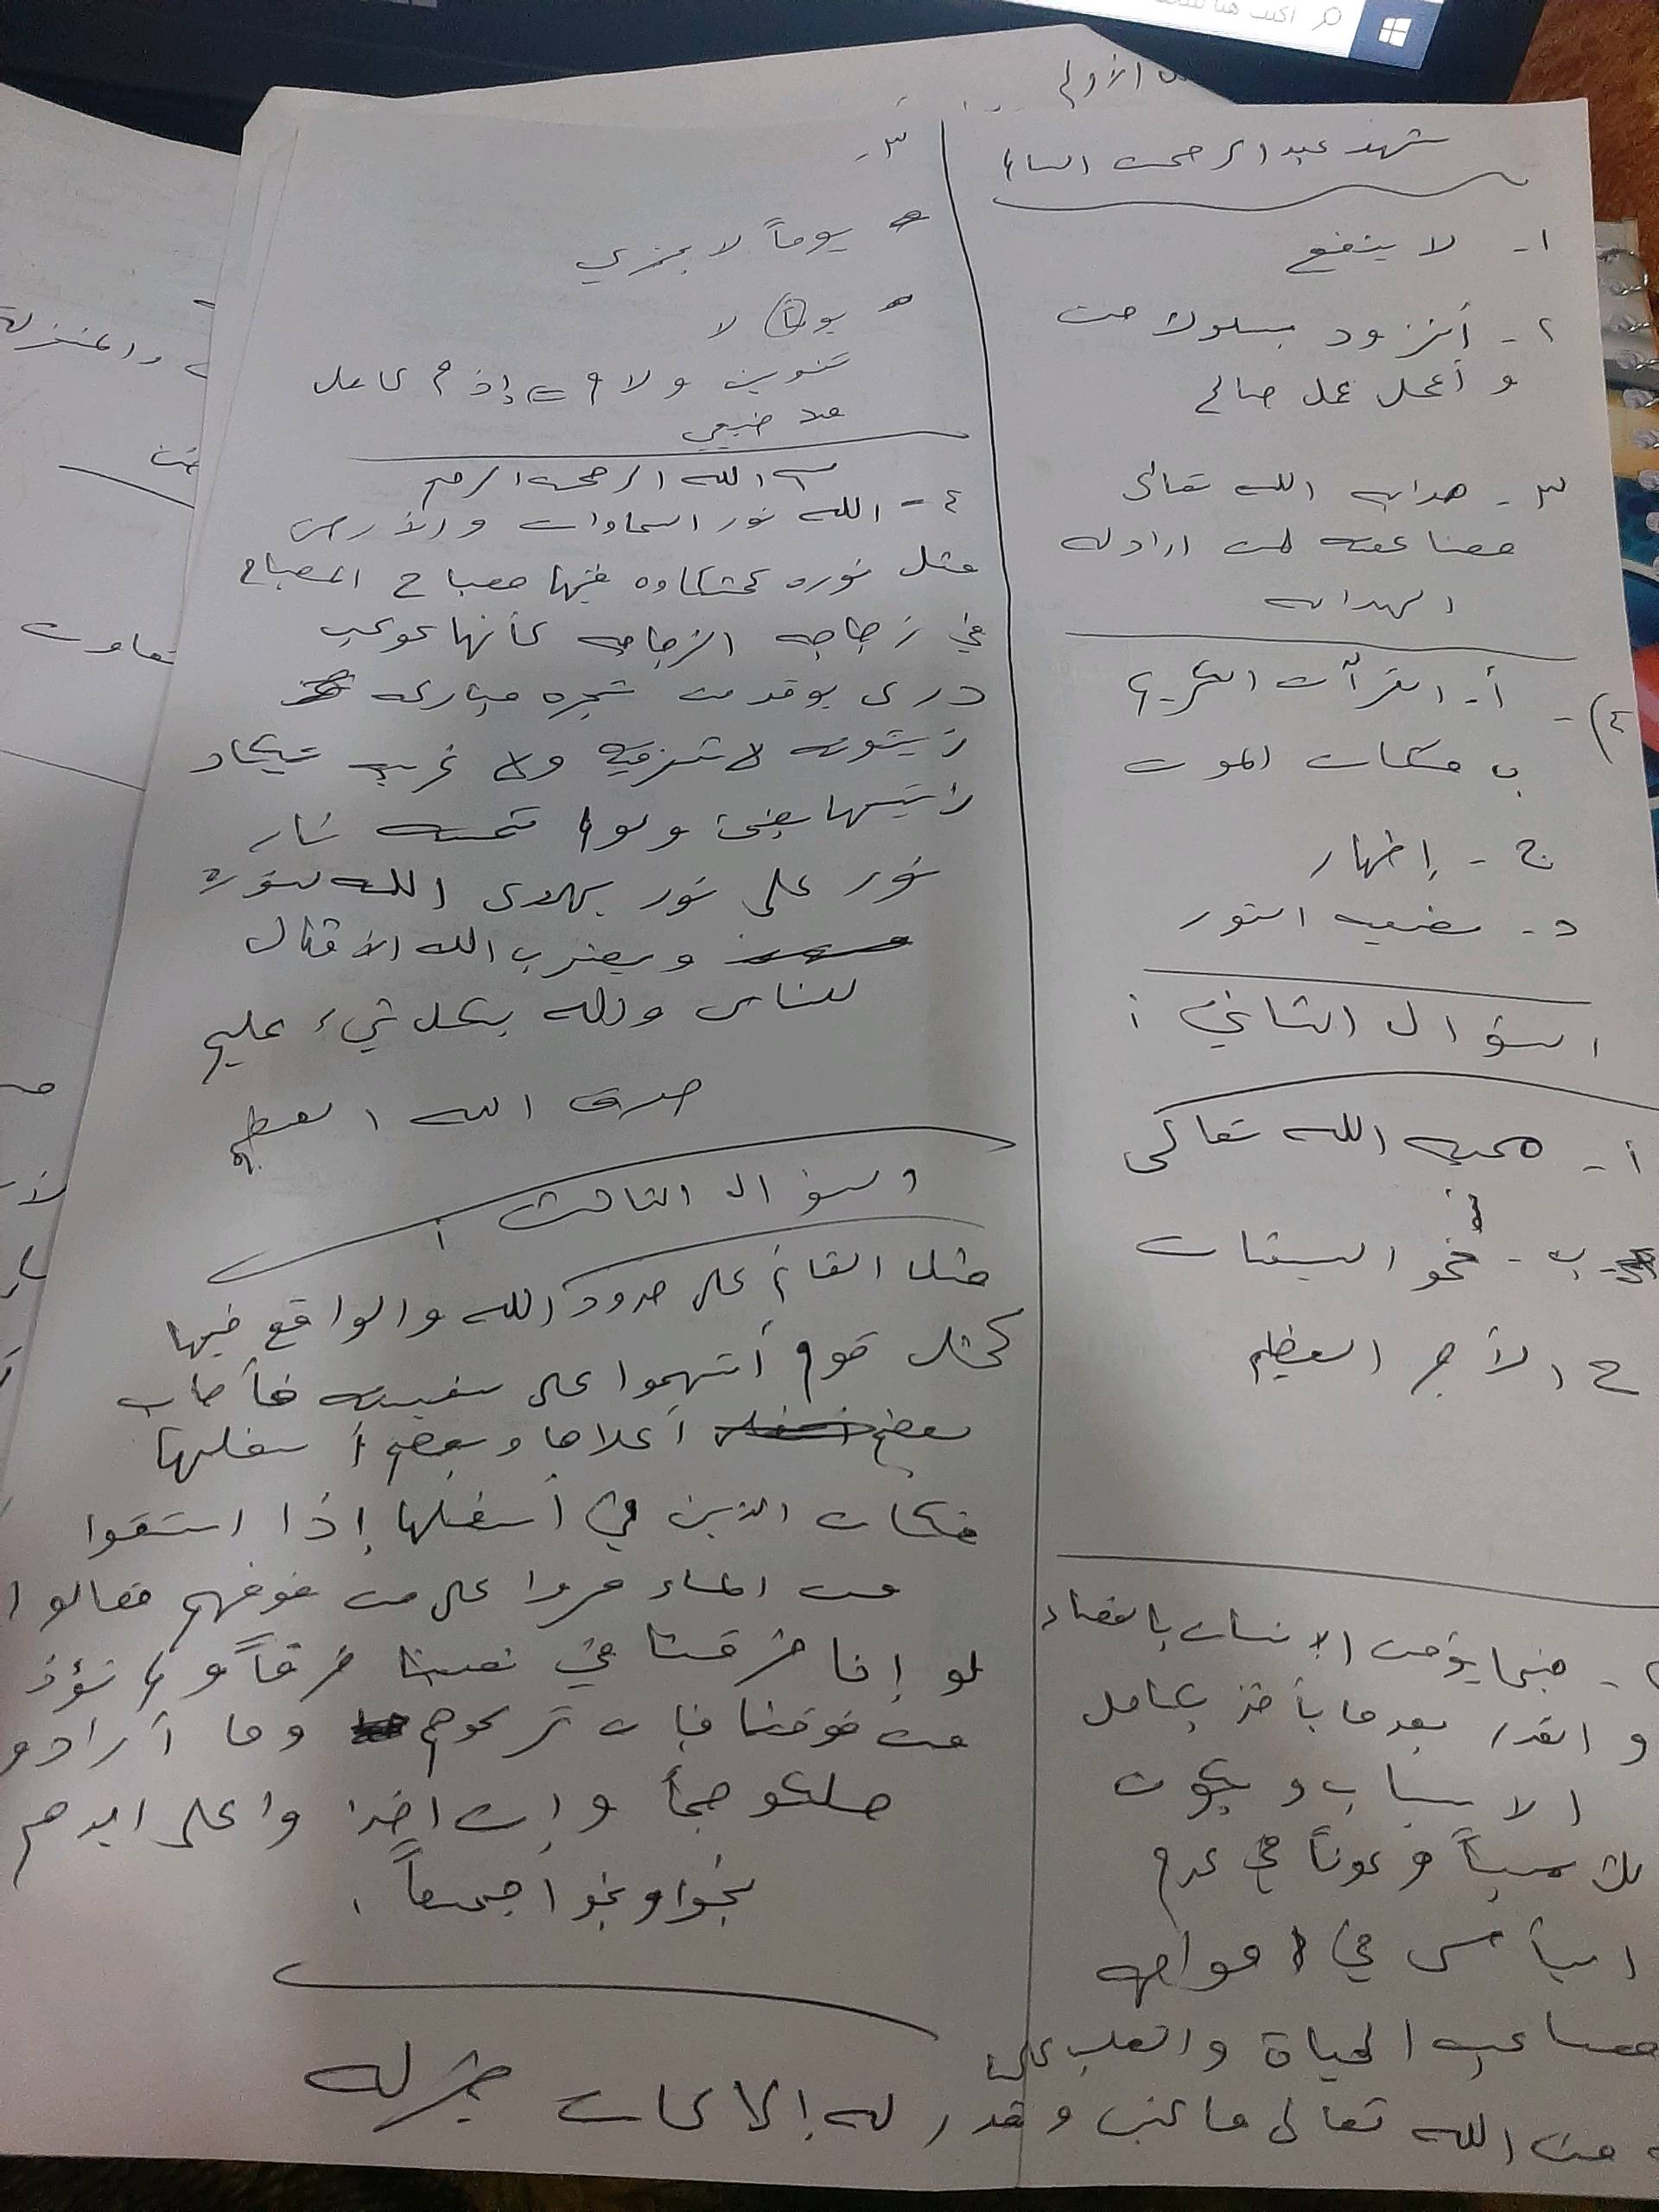 شهد عبد الرحمن
١- لا ينفع
٢- أتزود بسلوك حسن
و أعمل عمل صالح
٣- هدايه الله تعالى
مضاعفه لمن اراد له
الهدايه
٤) - أ- القرآن الكريم
ب سكرات الموت
ج - إظهار
د- سضيه النور
السؤال الثاني :
أ- محبه الله تعالى
ب - نحو السيئات
ج الأجر العظيم
- حينما يؤمن الإنسان بالقضاء
و القدر بعد ما يأخذ بكامل
الاسباب و يكون
سبباً و عوناً في عدم
اليأس في مواجهه
مصاعب الحياة والتغلب على
من الله تعالى ما كتب وقدر له إلا كان خير له
٣-
يوماً لا يجزي
يوماً لا
تنوين و لام = إدغام كامل
الله الرحمن الرحيم
٤- الله نور السماوات والأرض
مثل نوره كمشكاوه فيها مصباح المصباح
في زجاجه الزجاجه كأنها كوكب
درى يوقد من شجره مباركه
زيتونه لا شرقيه ولا غربيه يكاد
زيتها يضئ ولو لم تمسه نار
نور على نور يهدى الله لنوره
ويضرب الله الامثال
للناس والله بكل شيء عليم
صدق الله العظيم
السؤال الثالث :
مثل القائم على حدود الله والواقع فيها
كمثل قوم أستهموا على سفينه فأصاب
بعضهم أعلاها وبعضهم أسفلها
فكان الذين في أسفلها إذا استقوا
من الماء مروا على من فوقهم فقالوا
لو إنا خرقنا في نصيبنا خرقاً ولم نؤذ
من فوقنا فإن تركوهم وما أرادو
هلكو جمعاً وإن اخذوا على ايدهم
نجوا ونجوا جميعاً .